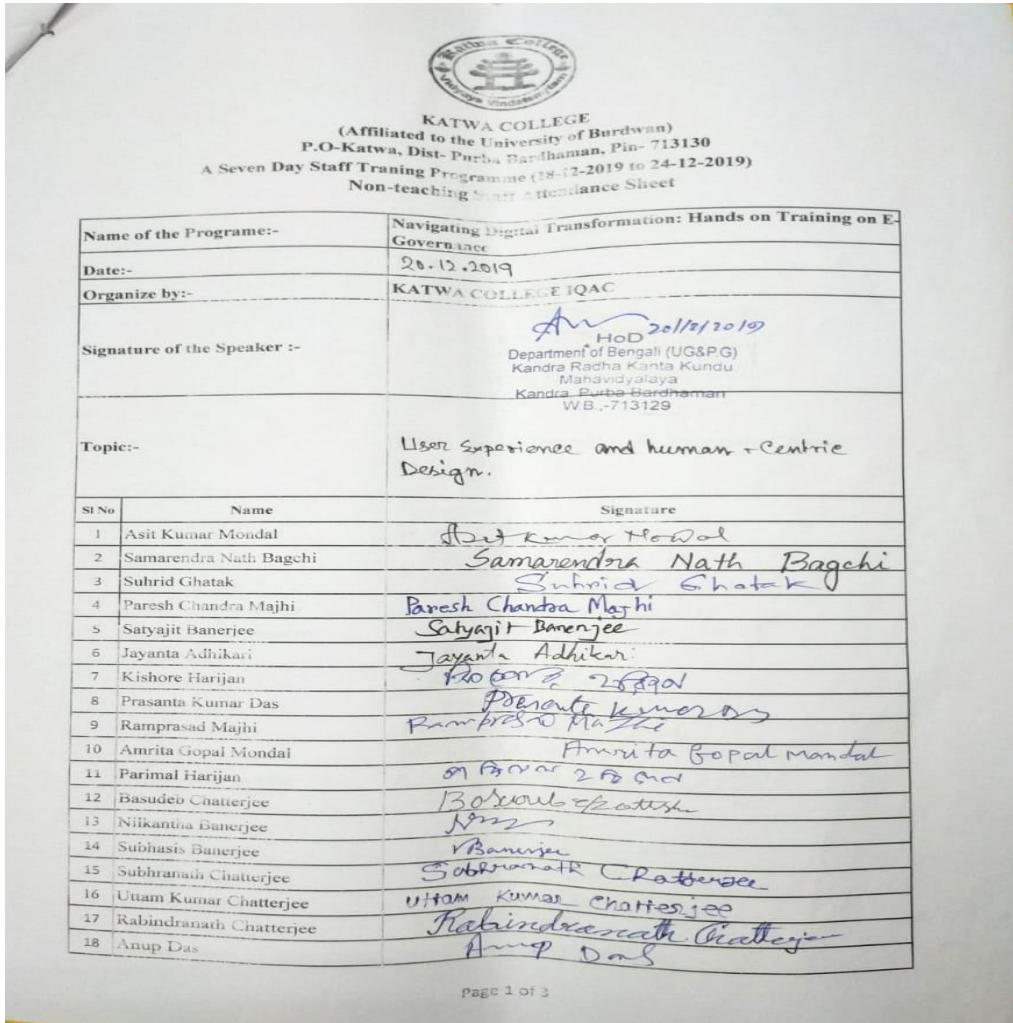 Katwa College
Vidyaya Vindatehmrtam
KATWA COLLEGE
(Affiliated to the University of Burdwan)
P.O-Katwa, Dist- Purba Bardhaman, Pin- 713130
A Seven Day Staff Traning Programme (18-12-2019 to 24-12-2019)
Non-teaching Staff Attendance Sheet
Name of the Programe:- Navigating Digital Transformation: Hands on Training on E-
Governance
Date:- 20.12.2019
Organize by:- KATWA COLLEGE IQAC
Signature of the Speaker :- 20/12/2019
HoD
Department of Bengali (UG&P.G)
Kandra Radha Kanta Kundu
Mahavidyalaya
Kandra, Purba Bardhaman
W.B.,-713129
Topic:- User Experience and human - Centric
Design.
Sl No Name Signature
1 Asit Kumar Mondal Asit Kumar Mondal
2 Samarendra Nath Bagchi Samarendra Nath Bagchi
3 Suhrid Ghatak Suhrid Ghatak
4 Paresh Chandra Majhi Paresh Chandra Majhi
5 Satyajit Banerjee Satyajit Banerjee
6 Jayanta Adhikari Jayanta Adhikari
7 Kishore Harijan
8 Prasanta Kumar Das Prasanta Kumar Das
9 Ramprasad Majhi Ramprasad Majhi
10 Amrita Gopal Mondal Amrita Gopal Mandal
11 Parimal Harijan
12 Basudeb Chatterjee
13 Nilkantha Banerjee
14 Subhasis Banerjee Banerjee
15 Subhranath Chatterjee Subhranath Chatterjee
16 Uttam Kumar Chatterjee Uttam Kumar Chatterjee
17 Rabindranath Chatterjee Rabindranath Chatterjee
18 Anup Das Anup Das
Page 1 of 3